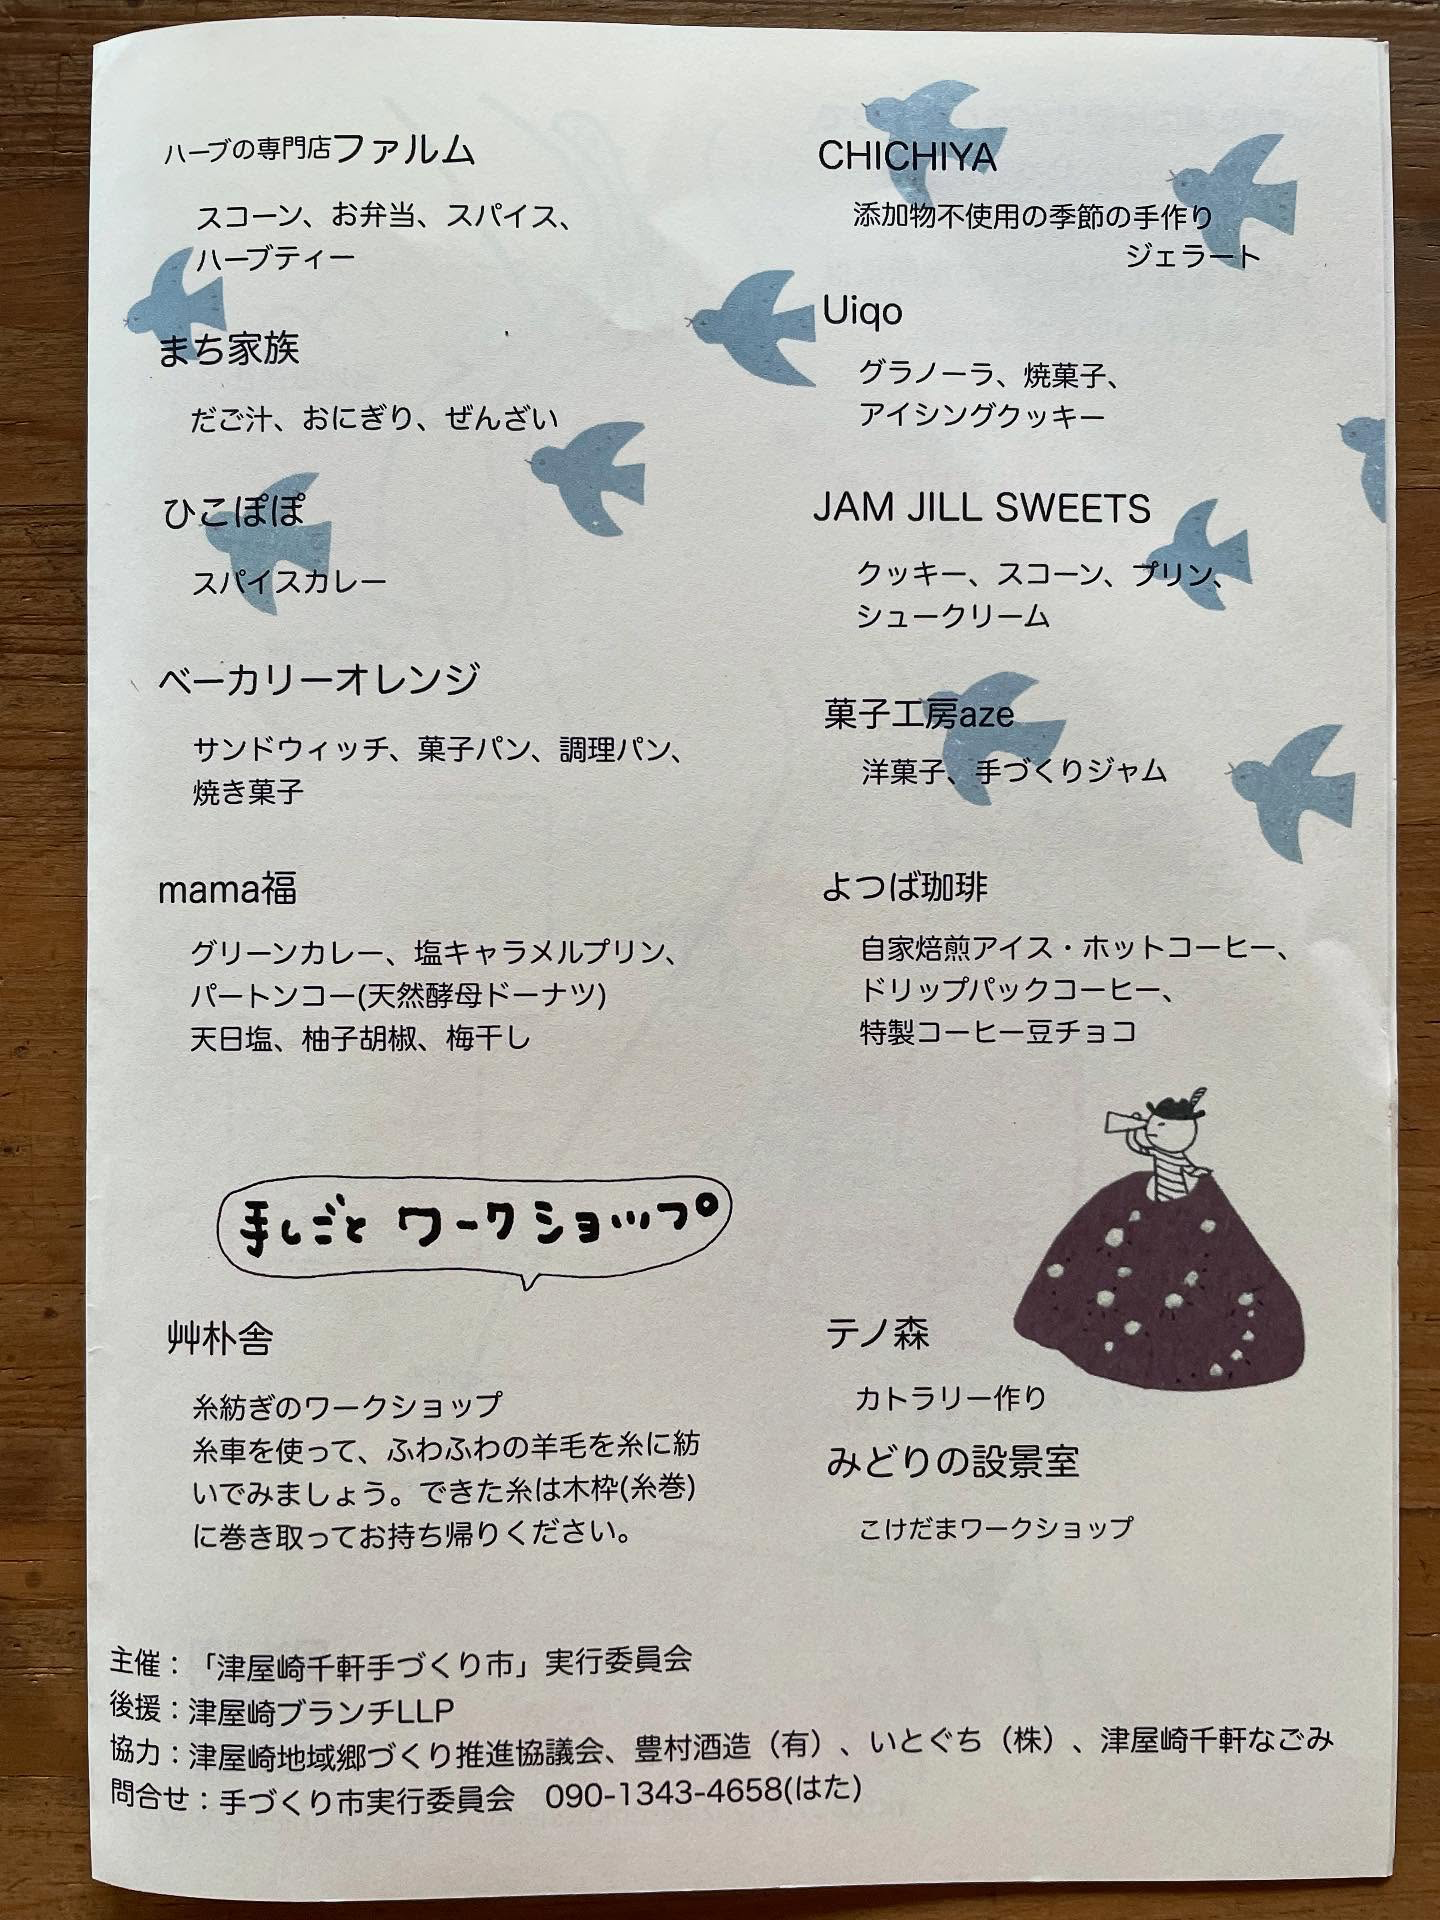 ハーブの専門店ファルム
スコーン、お弁当、スパイス、
ハーブティー
まち家族
だご汁、おにぎり、ぜんざい
ひこぽぽ
スパイスカレー
ベーカリーオレンジ
サンドウィッチ、菓子パン、調理パン、
焼き菓子
mama福
グリーンカレー、塩キャラメルプリン、
パートンコー(天然酵母ドーナツ)
天日塩、柚子胡椒、梅干し
CHICHIYA
添加物不使用の季節の手作り
ジェラート
Uiqo
グラノーラ、焼菓子、
アイシングクッキー
JAM JILL SWEETS
クッキー、スコーン、プリン、
シュークリーム
菓子工房aze
洋菓子、手づくりジャム
よつば珈琲
自家焙煎アイス・ホットコーヒー、
ドリップパックコーヒー、
特製コーヒー豆チョコ
手しごと ワークショップ
艸朴舎
糸紡ぎのワークショップ
糸車を使って、ふわふわの羊毛を糸に紡
いでみましょう。できた糸は木枠(糸巻)
に巻き取ってお持ち帰りください。
テノ森
カトラリー作り
みどりの設景室
こけだまワークショップ
主催：「津屋崎千軒手づくり市」実行委員会
後援：津屋崎ブランチLLP
協力：津屋崎地域郷づくり推進協議会、豊村酒造（有）、いとぐち（株）、津屋崎千軒なごみ
問合せ：手づくり市実行委員会　090-1343-4658(はた)